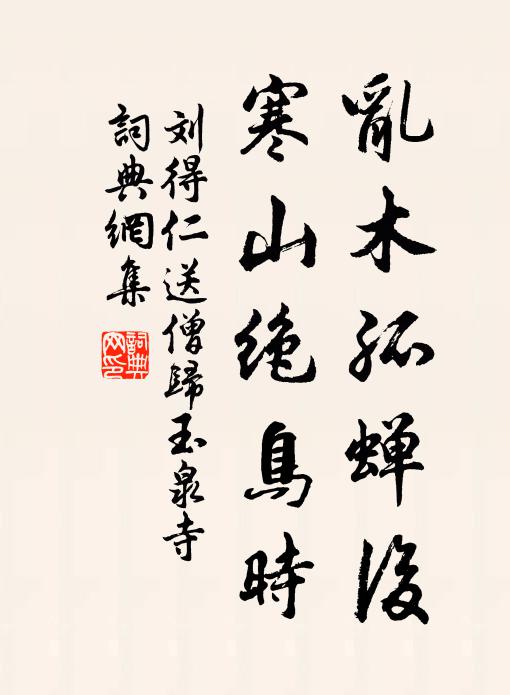 亂木孤蝉後
寒山绝鳥時
刘得仁送僧歸玉泉寺
詞典網集
詞典网印